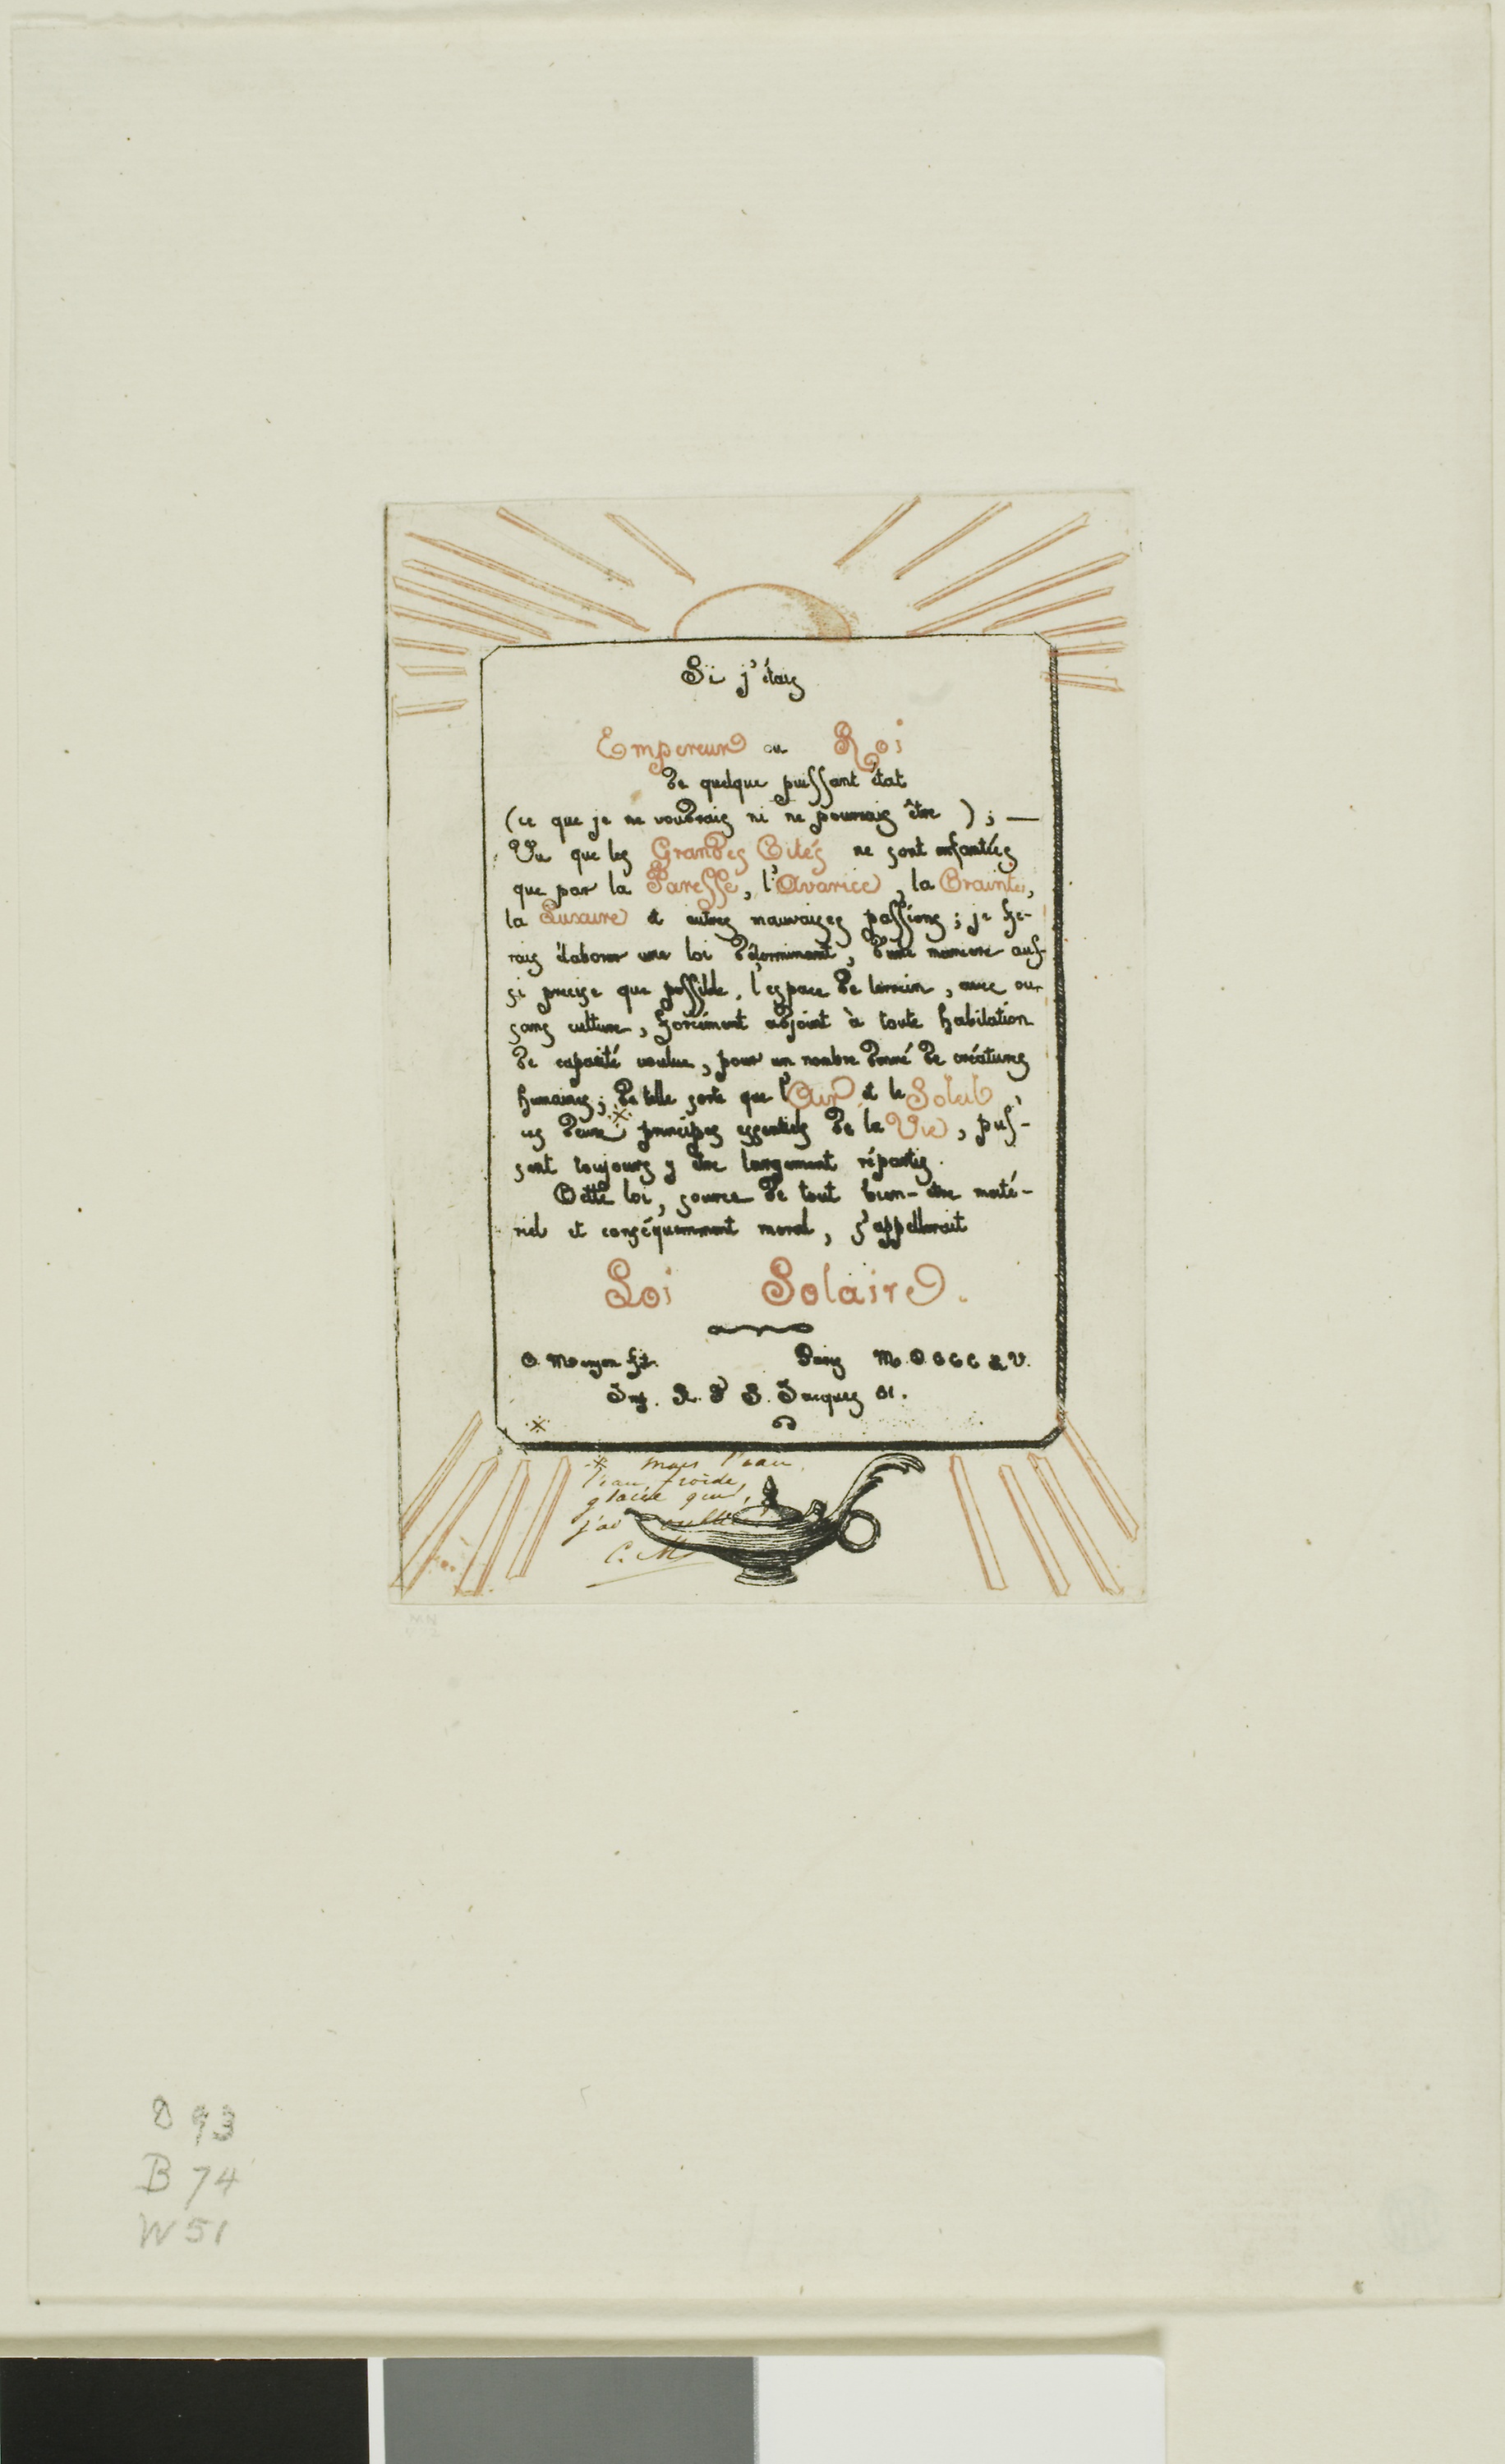 Si j'étais
Empereur ou Roi
de quelque puissant état
(ce que je ne voudrais ni ne pourrais être) ; —
Vu que les Grandes Cités ne sont enfantées
que par la Paresse, l'Avarice, la Crainte,
la Luxure et autres mauvaises passions ; je fe-
rais élaborer une loi déterminant, d'une manière aus-
si precise que possible, l'espace de terrain, avec ou
sans culture, forcément adjoint à toute habitation
de capacité voulue, pour un nombre donné de créatures
humaines ; de telle sorte que l'Air et le Soleil,
ces deux * principes essentiels de la Vie, pus-
sent toujours y être largement répartis.
Cette loi, source de tout bien-être maté-
riel et conséquemment moral, s'appellerait
Loi Solaire.
C. Meryon ft. Paris M.D.CCC.L.V.
Imp. R. N. S. Jacques 81.
*
* mais l'eau,
l'eau froide,
glacée que
j'ai oublié
C. M.
D 93
B 74
W 51